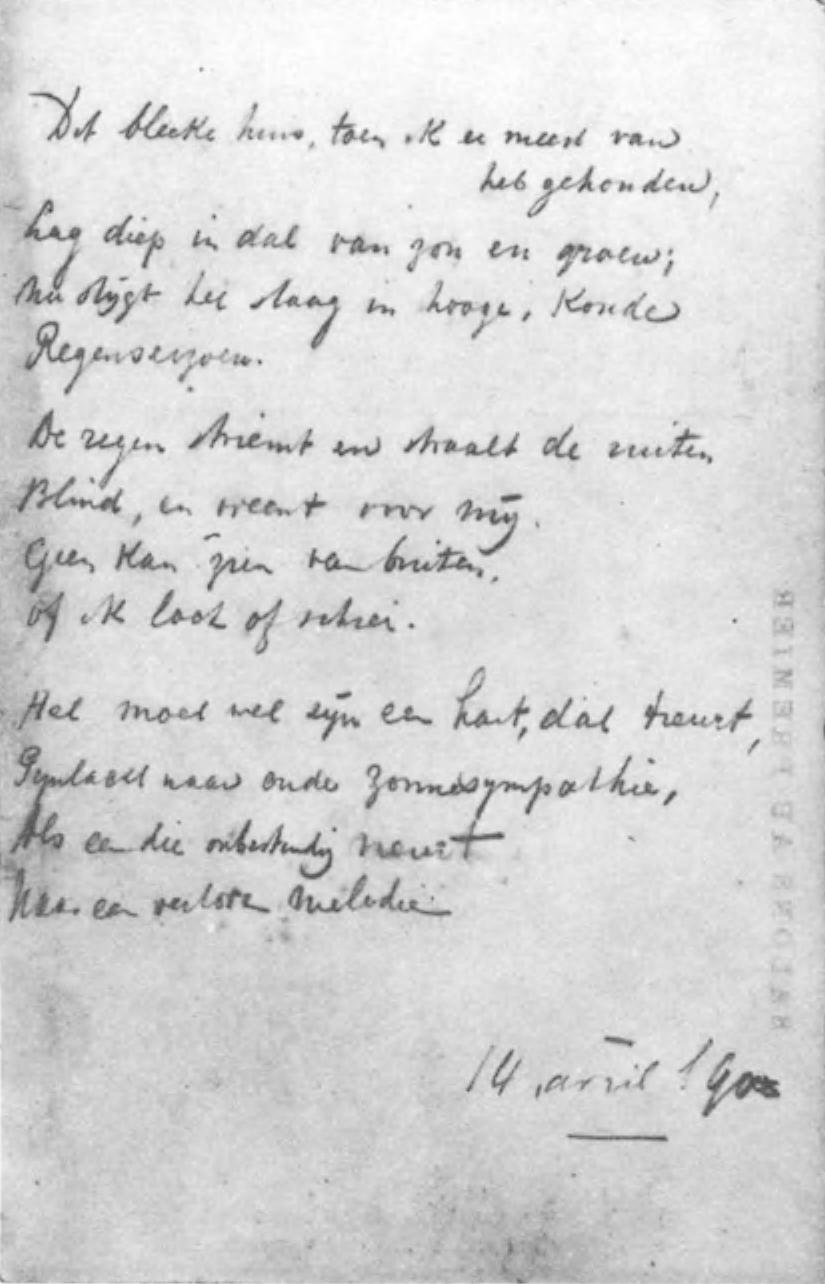 Dit bleeke huis, toen ik er meest van
heb gehouden,
Lag diep in dal van zon en groen;
Nu stijgt het staag in hooge, koude
Regenseizoen.
De regen striemt en straalt de ruiten
Blind, en weent voor mij.
Geen kan zien van buiten,
of ik lach of schrei.
Het moet wel zijn een hart, dat treurt,
naar oude zonnesympathie,
Als een die onbestendig neurt
Naar een verloren melodie
14 avril '90
SALONS AU PREMIER